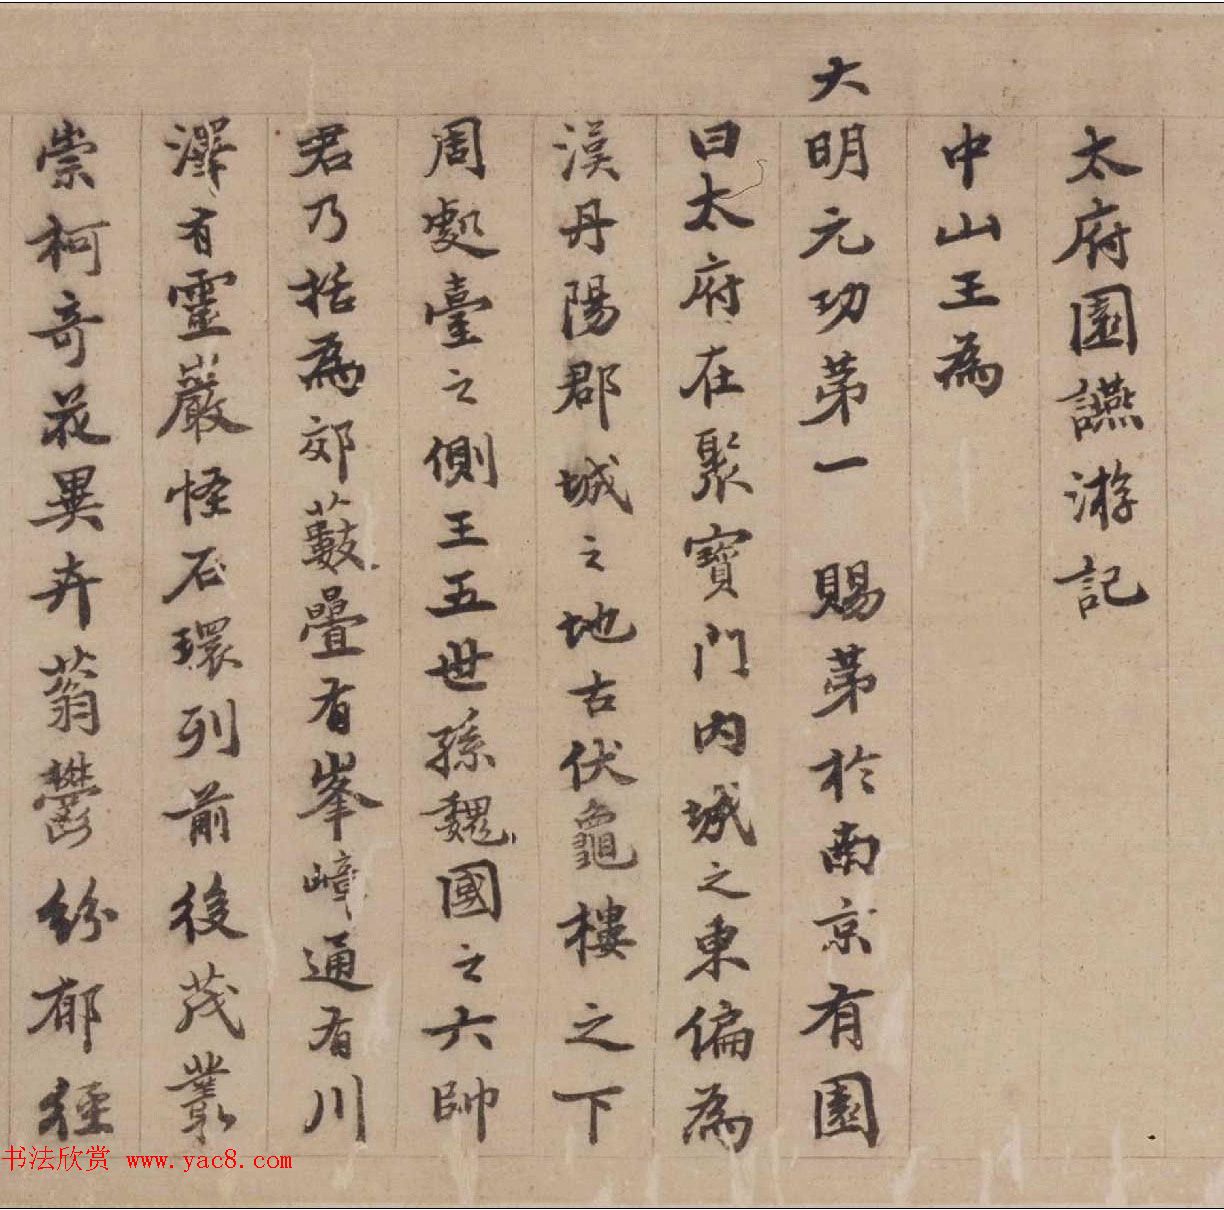 太府園讌游記
中山王為
大明元功第一 賜第於南京有園
曰太府在聚寶門內城之東偏為
漢丹陽郡城之地古伏龜樓之下
周處臺之側王五世孫魏國之六帥
君乃括為郊藪疊有峯嶂通有川
澤有靈巖怪石環列前後茂叢
崇柯奇花異卉蓊鬱紛郁徑
书法欣赏 www.yac8.com